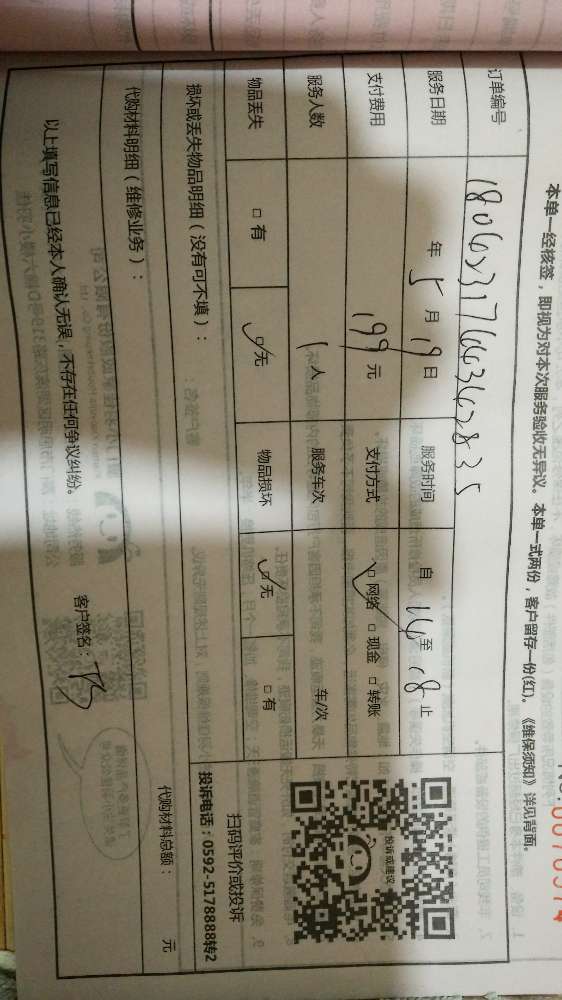 本单一经核签，即视为对本次服务验收无异议。本单一式两份，客户留存一份(红)。《维保须知》详见背面。
订单编号
服务日期 年 5 月 19 日 服务时间 自 14 至 18 止
支付费用 199 元 支付方式 ☑ 网络 □ 现金 □ 转账
服务人数 1 人 服务车次 车/次
物品丢失 □ 有 ☑ 无 物品损坏 ☑ 无 □ 有
投诉或建议
扫码评价或投诉
投诉电话：0592-5178888转2
损坏或丢失物品明细（没有可不填）：
代购材料明细（维修业务）： 代购材料总额： 元
以上填写信息已经本人确认无误，不存在任何争议纠纷。 客户签名：